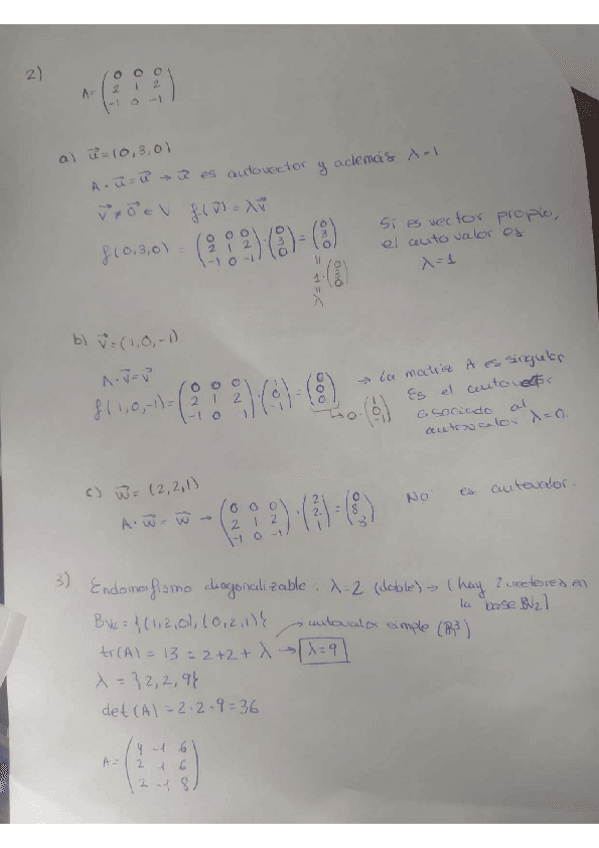 2)
A= (0 0 0
2 1 2
-1 0 -1)
a) u⃗=(0,3,0)
A·u⃗=u⃗ → u⃗ es autovector y además λ=1
v⃗≠0⃗ ∈ V f(v⃗)=λv⃗
f(0,3,0) = (0 0 0 / 2 1 2 / -1 0 -1)·(0 / 3 / 0) = (0 / 3 / 0)
= 1·(0 / 3 / 0)
= λ
Sí es vector propio,
el autovalor es
λ=1
b) v⃗=(1,0,-1)
A·v⃗=v⃗
f(1,0,-1)=(0 0 0 / 2 1 2 / -1 0 -1)·(1 / 0 / -1)=(0 / 0 / 0)
→ 0·(1 / 0 / -1)
→ la matriz A es singular
Es el autovector
asociado al
autovalor λ=0.
c) w⃗= (2,2,1)
A·w⃗ = w⃗ → (0 0 0 / 2 1 2 / -1 0 -1)·(2 / 2 / 1)=(0 / 8 / -3) No es autovalor.
3) Endomorfismo diagonalizable: λ=2 (doble) → (hay 2 vectores en
la base BV2)
BV2={(1,2,0),(0,2,1)}
→ autovalor simple (R³)
tr(A) = 13 = 2+2+ λ → λ=9
λ = {2, 2, 9}
det(A) = 2·2·9=36
A= (4 -1 6
2 1 6
2 -1 8)